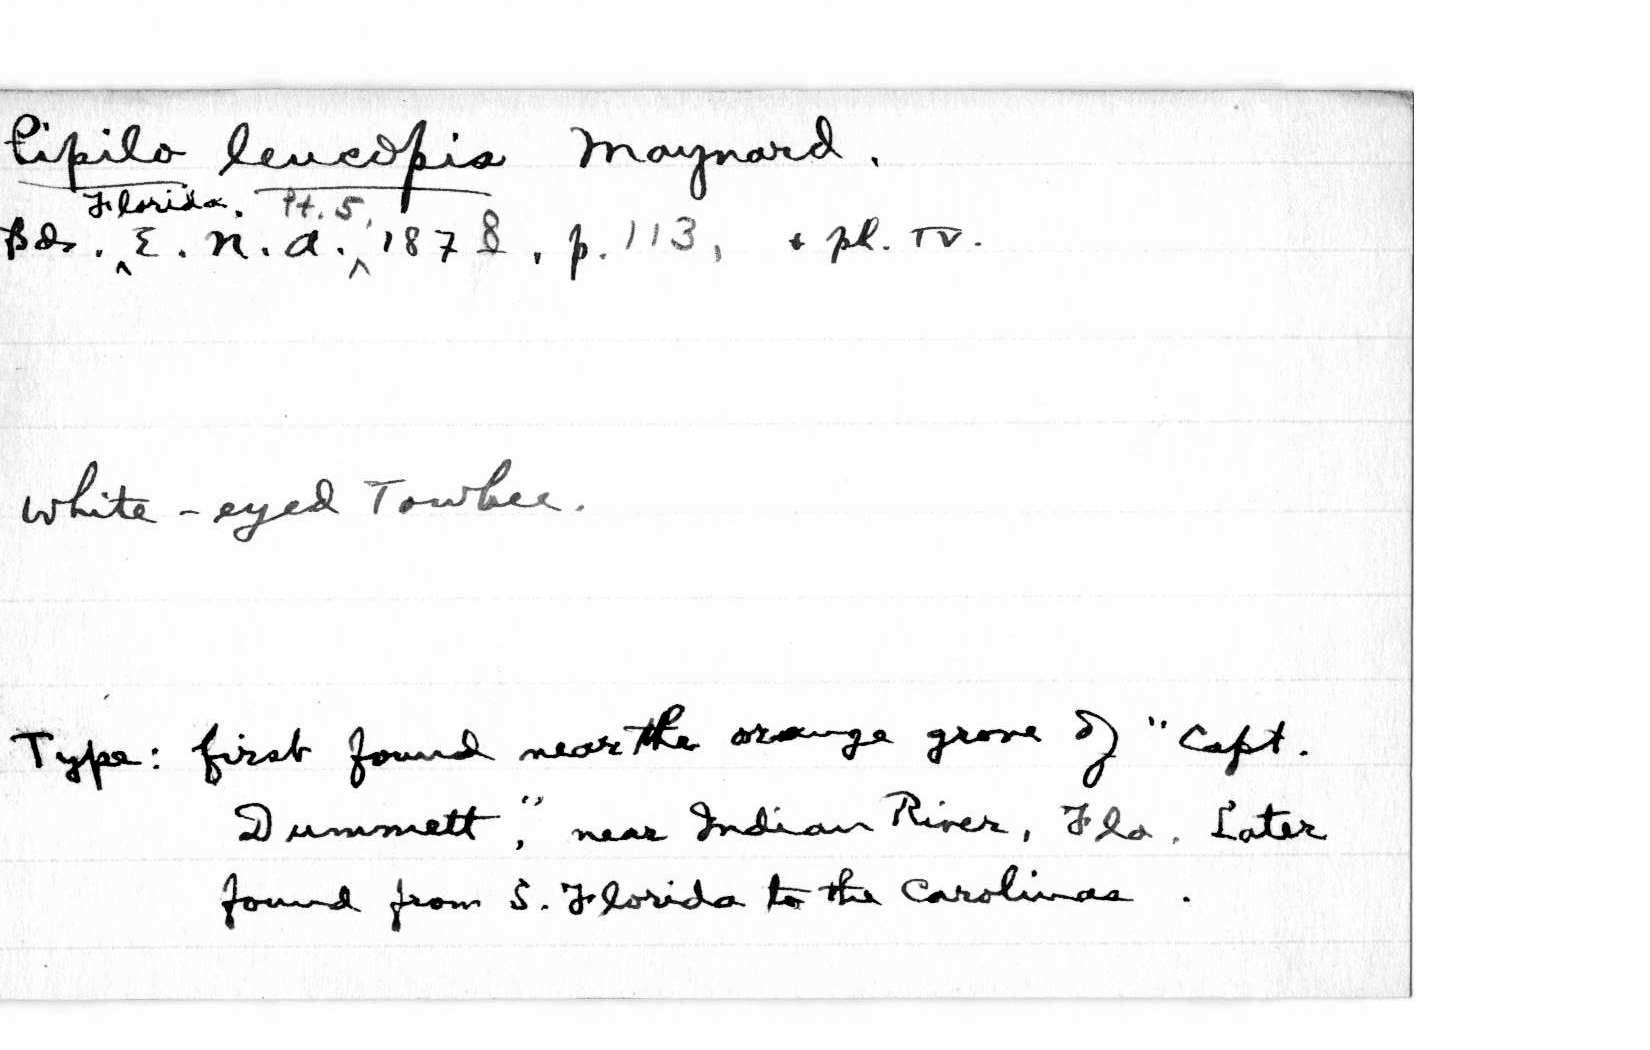 Pipilo leucopis Maynard.
Florida. Pt. 5,
Bds. ^ E. N. A. ^ 1878, p. 113, + pl. IV.
White-eyed Towhee.
Type: first found near the orange grove of "Capt.
Dummett," near Indian River, Fla. Later
found from S. Florida to the Carolinas.